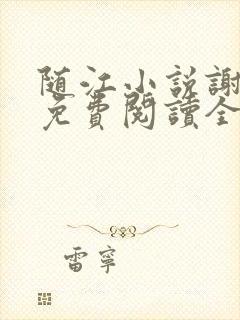 随江小説謝
免費閱讀全
雷寧